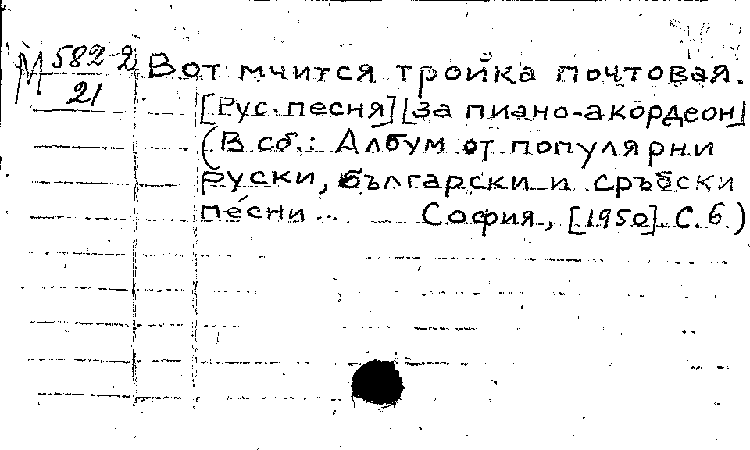 М 582-2
21
Вот мчится тройка почтовая.
[Рус. песня] [за пиано-акордеон]
(В сб.: Албум от популярни
руски, български и сръбски
песни... София, [1950] С. 6)